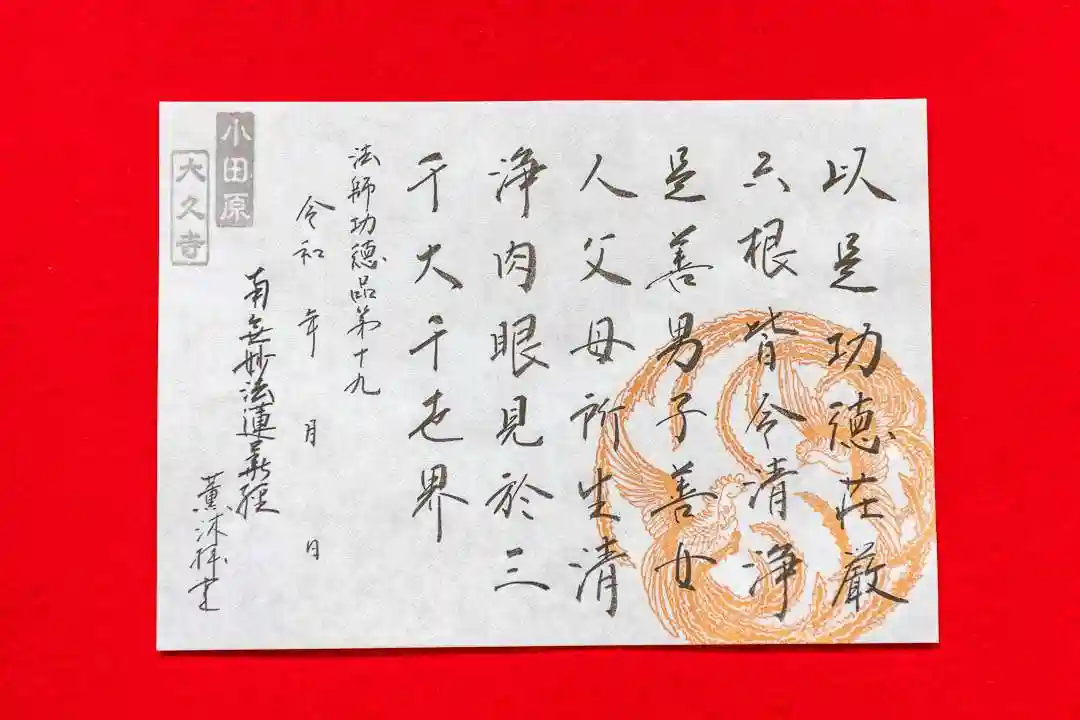 以是功徳荘厳
六根皆令清浄
是善男子善女
人父母所生清
浄肉眼見於三
千大千世界
法師功徳品第十九
令和 年 月 日
南無妙法蓮華経
薫沐拝書
小田原
大久寺